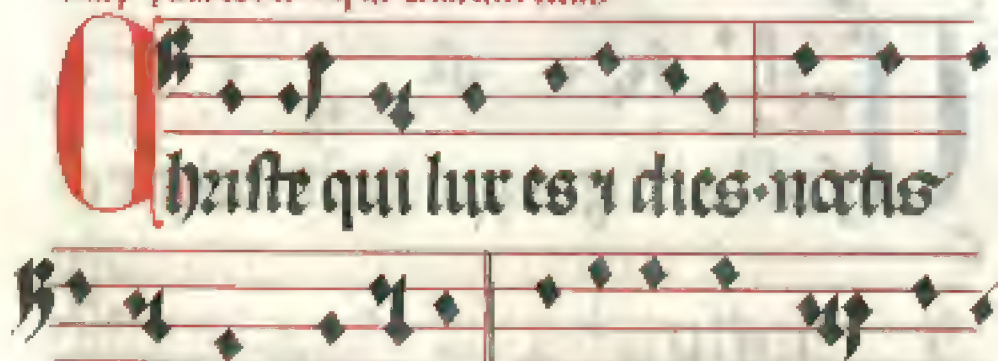 Christe qui lux es ⁊ dies·noctis